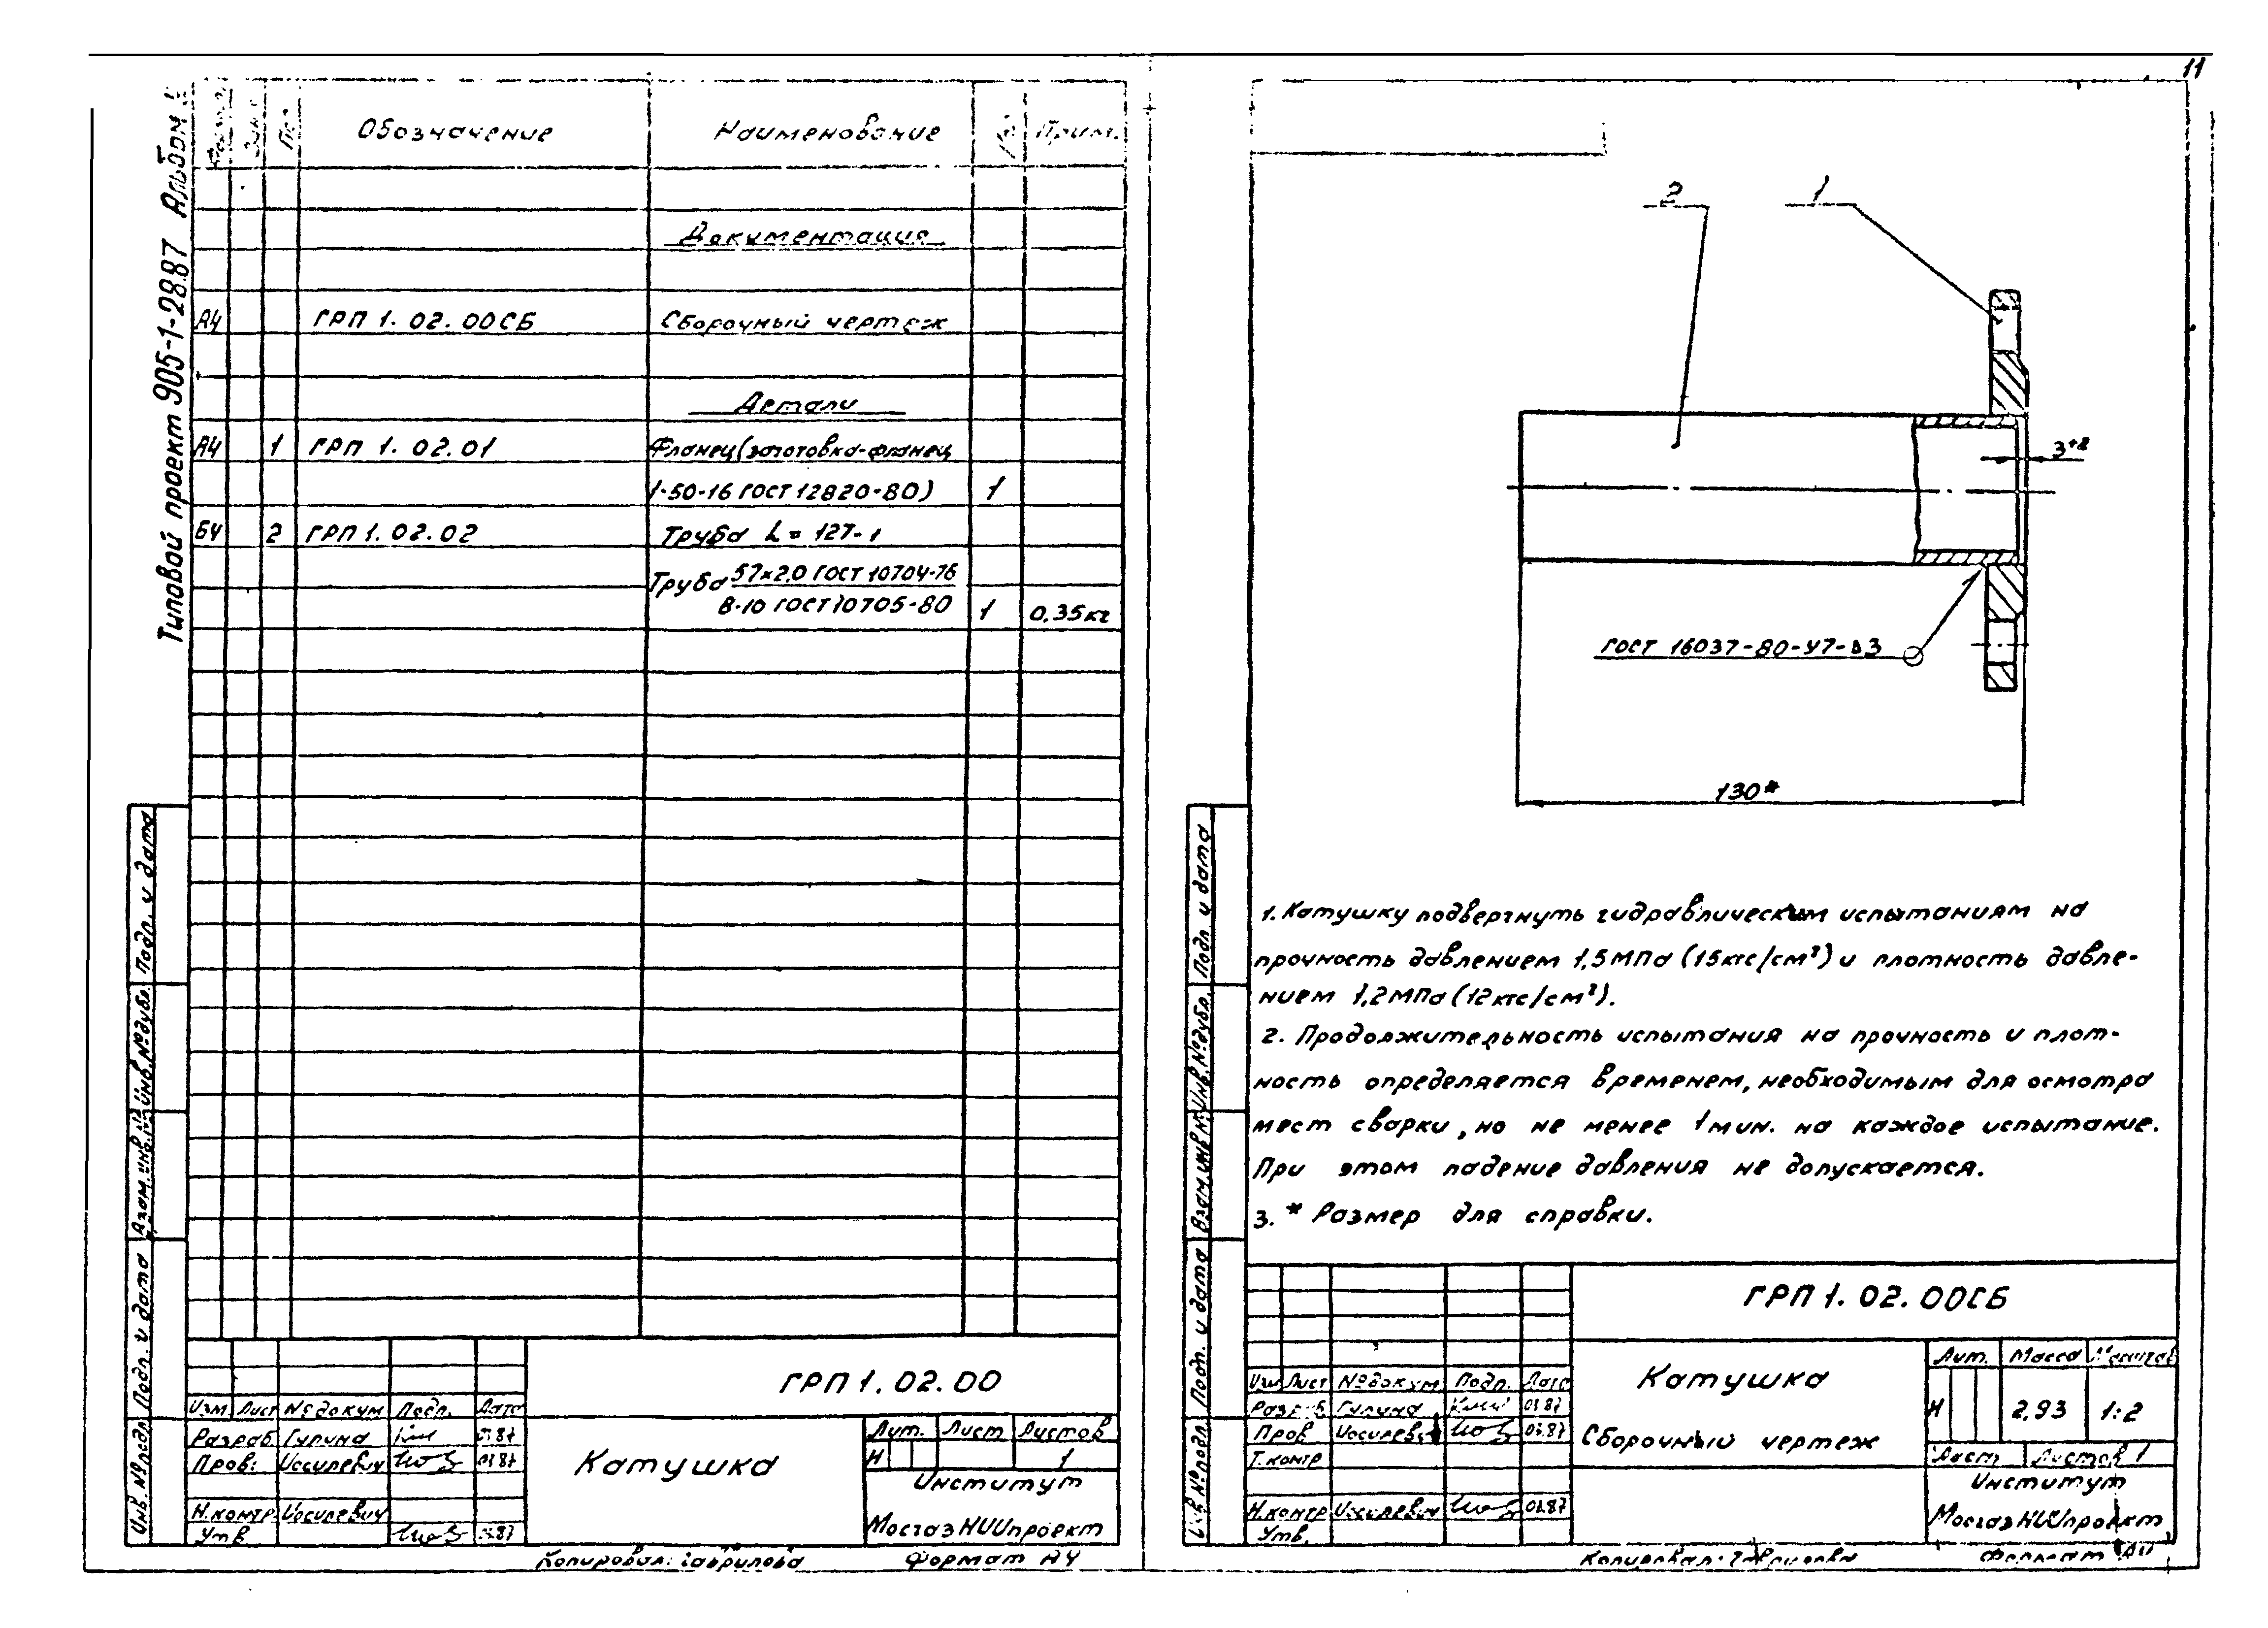 11
Типовой проект 905-1-28.87 Альбом
Обозначение Наименование Прим.
Документация
А4 ГРП 1.02.00СБ Сборочный чертеж
Детали
А4 1 ГРП 1.02.01 Фланец (заготовка-фланец
1-50-16 ГОСТ 12820-80) 1
Б4 2 ГРП 1.02.02 Труба L = 127-1
Труба 57×2,0 ГОСТ 10704-76
В-10 ГОСТ 10705-80 1 0,35кг
Подп. и дата
Инв.№дубл.
Взам.инв.№
Подп. и дата
Инв.№подл.
ГРП 1.02.00
Изм. Лист № докум Подп. Дата
Разраб. Гулина 03.87
Пров. Иосилевич 03.87
Н.контр. Иосилевич
Утв 03.87
Катушка
Лит. Лист Листов
Н 1
Институт
МосгазНИИпроект
Копировал: Гаврилова Формат А4
2 1
3+2
ГОСТ 16037-80-У7-Δ3
130*
1. Катушку подвергнуть гидравлическим испытаниям на
прочность давлением 1,5МПа (15кгс/см²) и плотность давле-
нием 1,2МПа (12кгс/см²).
2. Продолжительность испытания на прочность и плот-
ность определяется временем, необходимым для осмотра
мест сварки, но не менее 1мин. на каждое испытание.
При этом падение давления не допускается.
3. * Размер для справки.
Подп. и дата
Инв.№дубл.
Взам.инв.№
Подп. и дата
Инв.№подл.
ГРП 1.02.00СБ
Изм Лист № докум Подп. Дата
Разраб. Гулина 03.87
Пров Иосилевич 03.87
Т.контр
Н.контр Иосилевич 03.87
Утв.
Катушка
Сборочный чертеж
Лит. Масса Масштаб
Н 2,93 1:2
Лист Листов 1
Институт
МосгазНИИпроект
Копировал: Гаврилова Формат А4